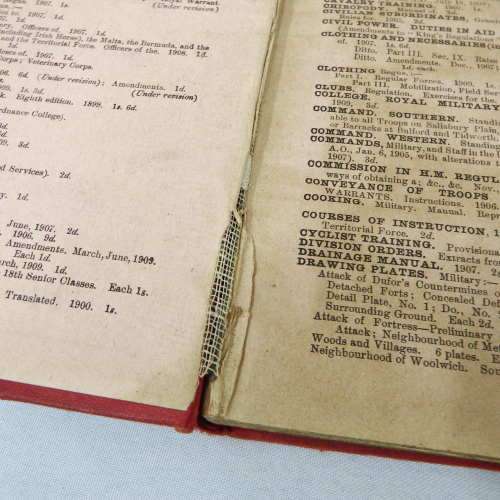 Royal Warrant.
(Under revision)
1907.
of 1907. 1d.
including Irish Horse), the Malta, the Bermuda, and the
and the Territorial Force. Officers of the. 1908. 1d.
of. 1907. 1d.
Corps; Veterinary Corps.
6d. (Under revision); Amendments. 1d.
(Under revision)
Eighth edition. 1899. 1s. 6d.
Ordnance College).
3d.
ed Services). 2d.
1d.
June, 1907. 2d.
1906. 9d.
Amendments. March, June, 1909.
Each 1d.
March, 1909. 1d.
18th Senior Classes. Each 1s.
Translated. 1900. 1s.
CAVALRY TRAINING.
CIVILIAN SUBORDINATES,
Rules for. 1905. 2d.
CIVIL POWER. DUTIES IN AID
(Amendments to "King's Regulations"
CLOTHING AND NECESSARIES
of. 1907. 1s. 6d.
Ditto. Part III. Sec. IX. Rates
Ditto. Amendments. Dec., 1907
1d. each.
CLOTHING Regns.
Part I. Regular Forces. 1909. 1s.
Part III. Mobilization, Field Ser
CLUBS. Regulation. Exercises for the
COLLEGE. ROYAL MILITARY
1909. 3d.
COMMAND. SOUTHERN. Standing
able to all Troops on Salisbury Plain
or Barracks at Bulford and Tidworth.
COMMAND. WESTERN. Standing
COMMANDS, Military, and Staff in the
A.O., Jan. 6, 1905, with alterations
1907). 3d.
COMMISSION IN H.M. REGUL
ways of obtaining a; &c., &c. Nov
CONVEYANCE OF TROOPS
WARRANTS. Instructions. 1906.
COOKING. Military. Manual. Repr
COURSES OF INSTRUCTION, 1
Territorial Force. 2d.
CYCLIST TRAINING. Provisiona
DIVISION ORDERS. Extracts from
DRAINAGE MANUAL. 1907.
DRAWING PLATES. Military:—
Attack of Dufor's Countermines
Detached Forts; Concealed Def
Detail Plate, No. 1; Do., No.
Surrounding Ground. Each 2d.
Attack of Fortress—Preliminary
Attack; Neighbourhood of Met
Woods and Villages. 6 plates. E
Neighbourhood of Woolwich. Sou